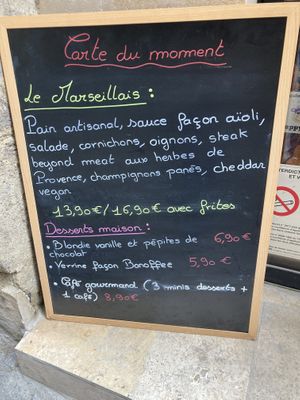 Carte du moment
Le Marseillais :
Pain artisanal, sauce façon aïoli,
salade, cornichons, oignons, steak
beyond meat aux herbes de
Provence, champignons panés, cheddar
vegan
13,90€/16,90€ avec frites
Desserts maison :
• Blondie vanille et pépites de 6,90€
chocolat
• Verrine façon Banoffee 5,90€
• Café gourmand (3 minis desserts +
1 café) 8,90€